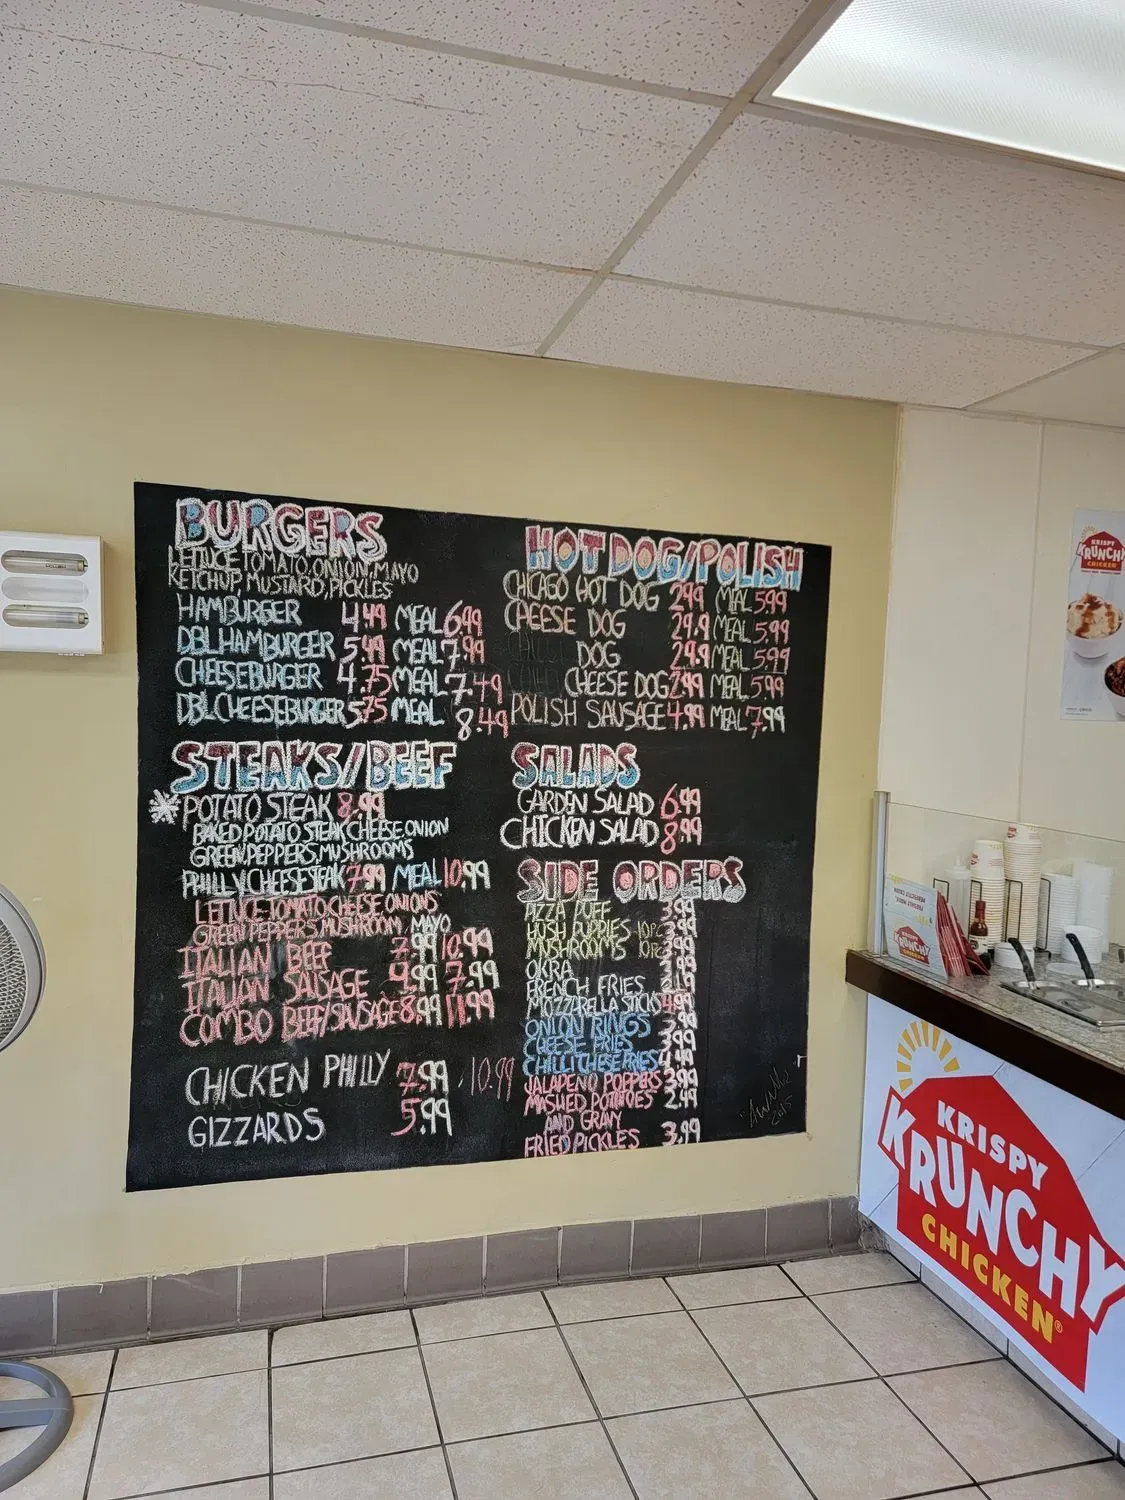 BURGERS
LETTUCE, TOMATO, ONION, MAYO
KETCHUP, MUSTARD, PICKLES
HAMBURGER 4.49 MEAL 6.99
DBL HAMBURGER 5.49 MEAL 7.99
CHEESEBURGER 4.75 MEAL 7.49
DBL CHEESEBURGER 5.75 MEAL 8.49
STEAKS/BEEF
* POTATO STEAK 8.99
BAKED POTATO STEAK, CHEESE, ONION
GREEN PEPPERS, MUSHROOMS
PHILLY CHEESESTEAK 7.99 MEAL 10.99
LETTUCE-TOMATO, CHEESE, ONIONS
GREEN PEPPERS, MUSHROOM, MAYO
ITALIAN BEEF 7.99 10.99
ITALIAN SAUSAGE 4.99 7.99
COMBO BEEF/SAUSAGE 8.99 11.99
CHICKEN PHILLY 7.99 10.99
GIZZARDS 5.99
HOT DOG/POLISH
CHICAGO HOT DOG 2.99 MEAL 5.99
CHEESE DOG 29.9 MEAL 5.99
DOG 29.9 MEAL 5.99
CHEESE DOG 2.99 MEAL 5.99
POLISH SAUSAGE 4.99 MEAL 7.99
SALADS
GARDEN SALAD 6.99
CHICKEN SALAD 8.99
SIDE ORDERS
PIZZA PUFF 3.99
HUSH PUPPIES 10PC 3.99
MUSHROOM'S 10PC 3.99
OKRA
FRENCH FRIES
MOZZARELLA STICKS 4.99
ONION RINGS 3.99
CHEESE FRIES 3.99
CHILLI CHEESE FRIES 4.49
JALAPENO POPPERS 3.99
MASHED POTATOES 2.99
AND GRAVY
FRIED PICKLES 3.99
2015
KRISPY
KRUNCHY
CHICKEN
KRISPY
KRUNCHY
CHICKEN®